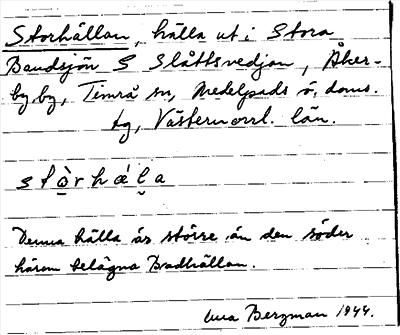 Storhällan, hälla ut i Stora
Bandsjön S Slåttsvedjan, Åker-
by by, Timrå sn, Medelpads ö. doms.
tg, Västernorrl. län.
stòrhɛ́l̬a
Denna hälla är större än den söder
härom belägna Bradhällan.
Bergman 1944.